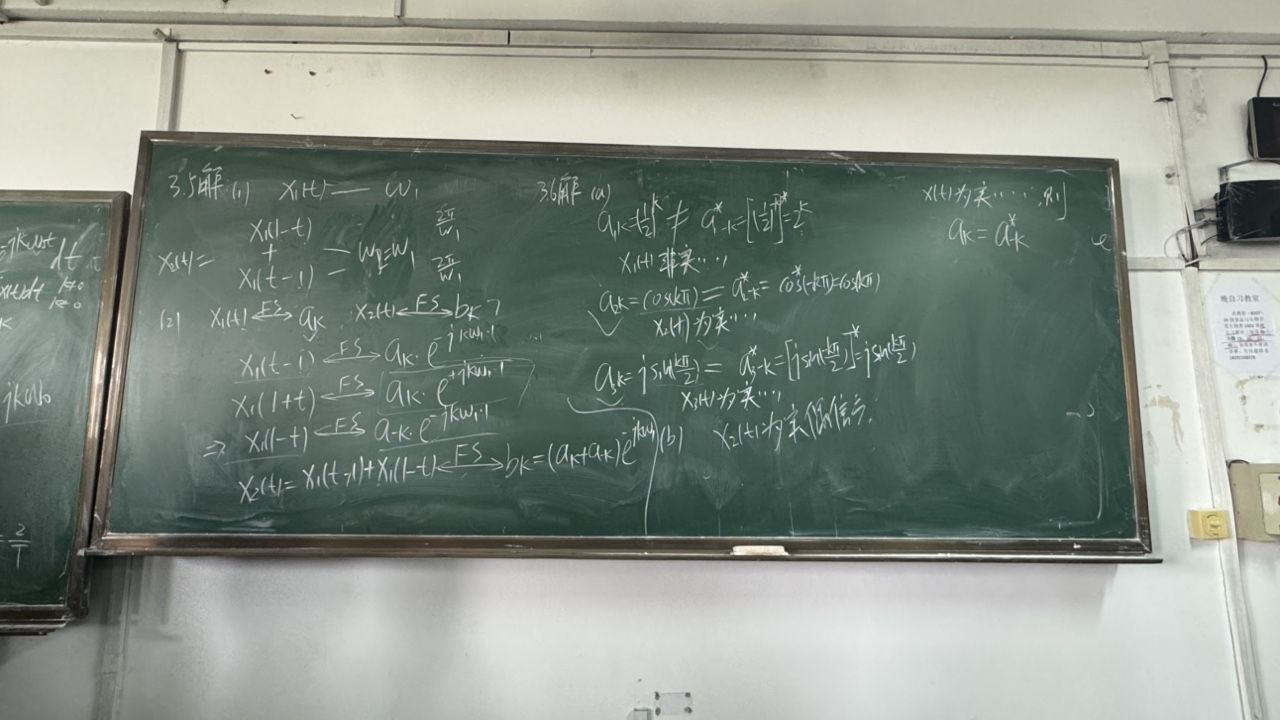 -jkω₀t dt
x(t)dt k≠0
k=0
K
jkω₀
= 2/T
3.5解(1) x₁(t) — ω₁
x₁(1-t) 2π/ω₁
x₂(t)= + — ω₂=ω₁
x₁(t-1) — 2π/ω₁
(2) x₁(t) <-FS-> aₖ x₂(t) <-FS-> bₖ ?
x₁(t-1) <-FS-> aₖ·e^{-jkω₁·1} ...
x₁(1+t) <-FS-> aₖ·e^{+jkω₁·1}
⇒ x₁(1-t) <-FS-> a₋ₖ·e^{-jkω₁·1}
x₂(t)=x₁(t-1)+x₁(1-t) <-FS-> bₖ=(aₖ+a₋ₖ)e^{-jkω₁}
3.6解 (a)
a₁,ₖ=(1/2)^k ≠ a*₋ₖ=[(1/2)^{-k}]*=2^k
x₁(t)非实……
a₂ₖ=cos(kπ)=a*₂₋ₖ=cos*(-kπ)=cos(kπ)
x₂(t)为实……
a₃ₖ=jsin(kπ/2)=a*₃₋ₖ=[jsin(-kπ/2)]*=jsin(kπ/2)
x₃(t)为实……
(b) x₂(t)为实偶信号.
x(t)为实……,则
aₖ=a*₋ₖ
e
晚自习教室